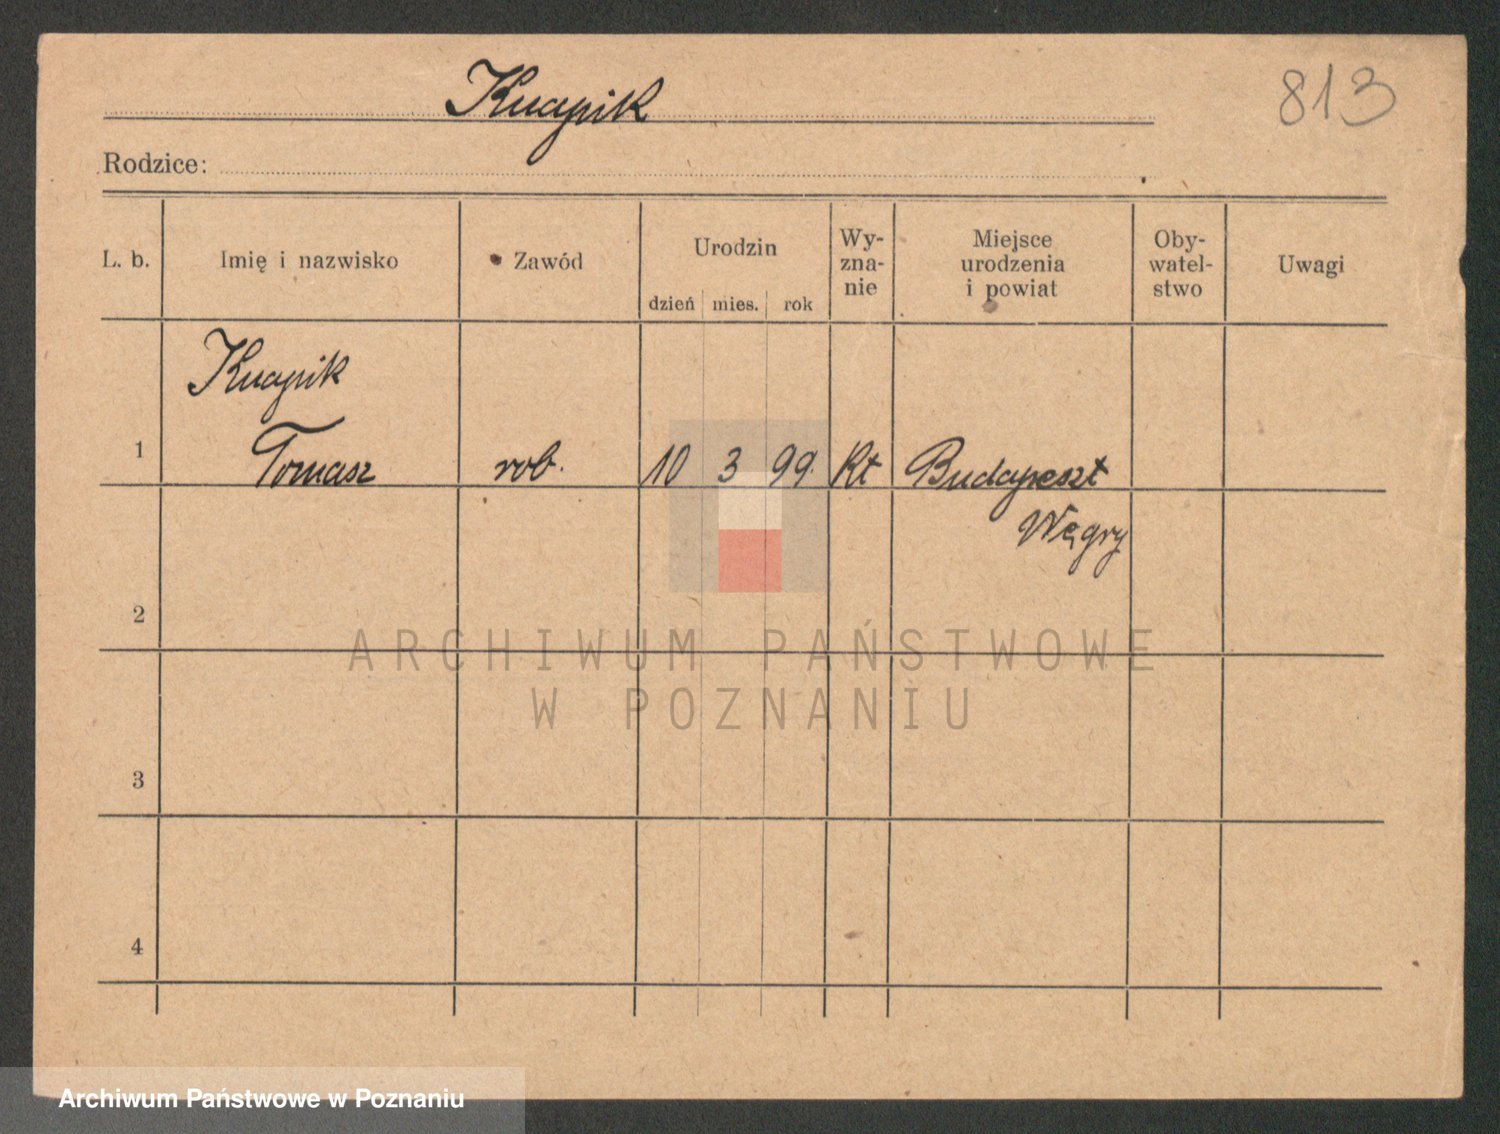 Knapik
813
Rodzice:
L. b.
Imię i nazwisko
Zawód
Urodzin
dzień mies. rok
Wy-
zna-
nie
Miejsce
urodzenia
i powiat
Oby-
watel-
stwo
Uwagi
Knapik
1 Tomasz rob. 10 3 99. Kt Budapeszt
Węgry
2
3
4
ARCHIWUM PAŃSTWOWE
W POZNANIU
Archiwum Państwowe w Poznaniu